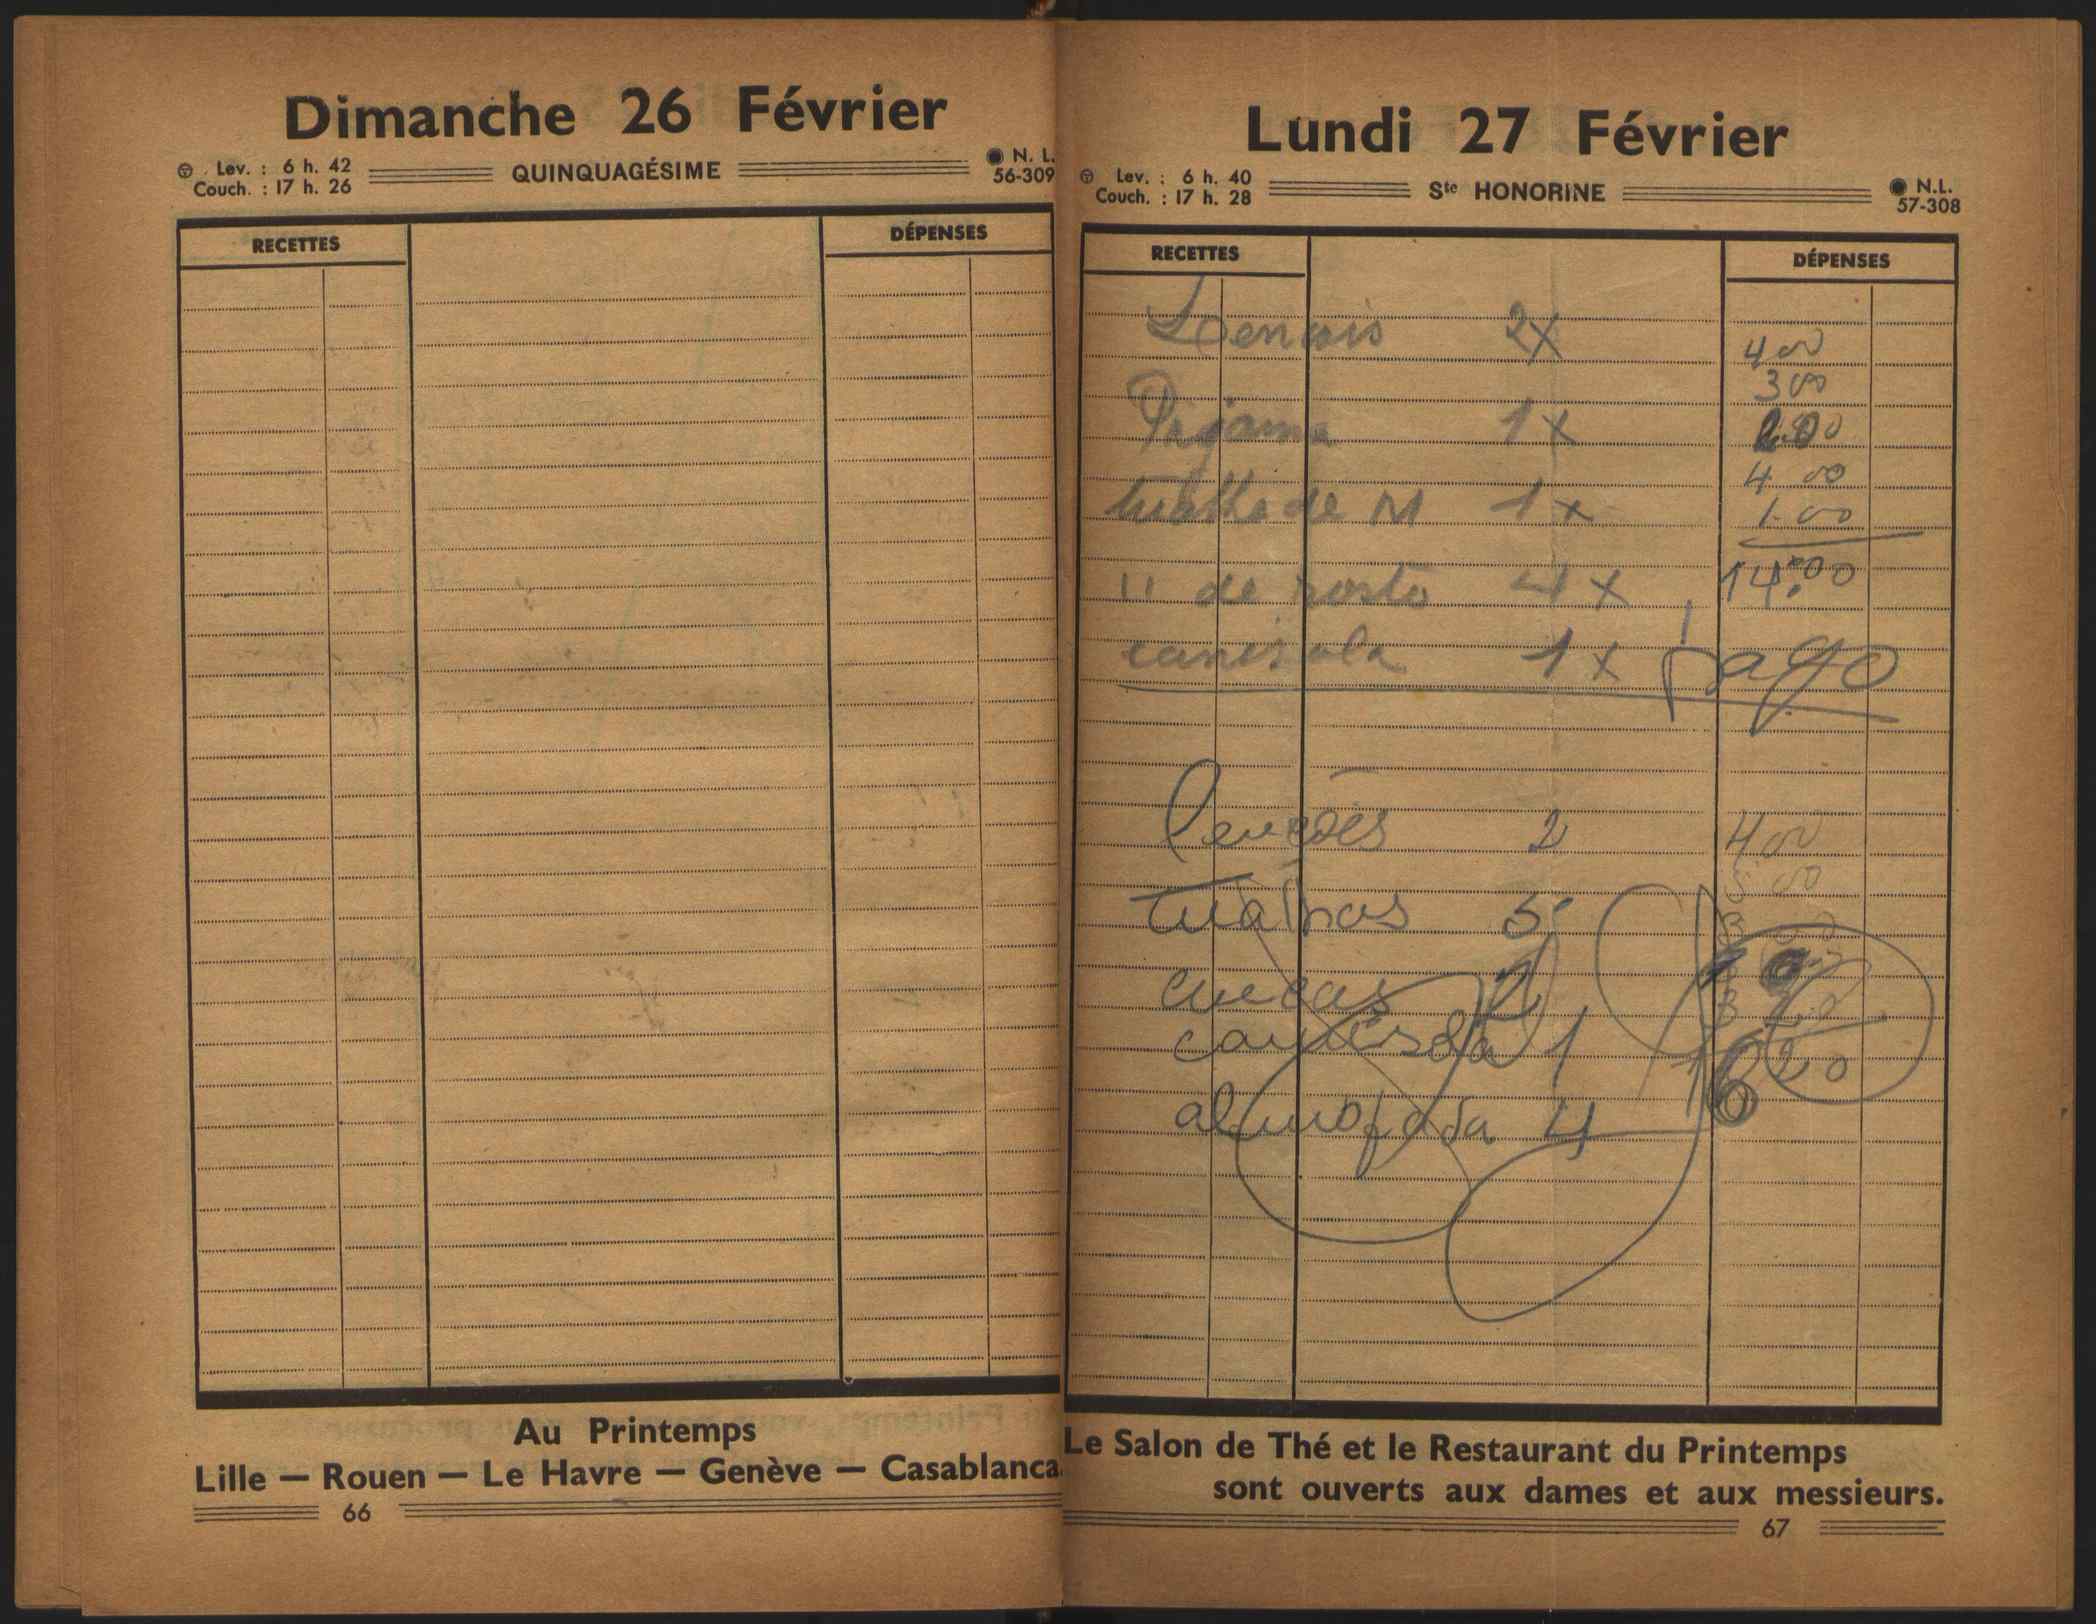 Dimanche 26 Février
Lev. : 6 h. 42
Couch. : 17 h. 26
QUINQUAGÉSIME
N. L.
56-309
RECETTES
DÉPENSES
Au Printemps
Lille — Rouen — Le Havre — Genève — Casablanca.
66
Lundi 27 Février
Lev. : 6 h. 40
Couch. : 17 h. 28
Ste HONORINE
N.L.
57-308
RECETTES
DÉPENSES
Lencois 2x
4 00
3 00
Pijama 1x
2.00
4 00
tualha de M 1x
1.00
" de rosto 4x
14.00
camisola 1x pago
Lençoes 2 4 00
5 00
tualhas 5
cuecas 2
camisola 1
20
almofada 4
Le Salon de Thé et le Restaurant du Printemps
sont ouverts aux dames et aux messieurs.
67